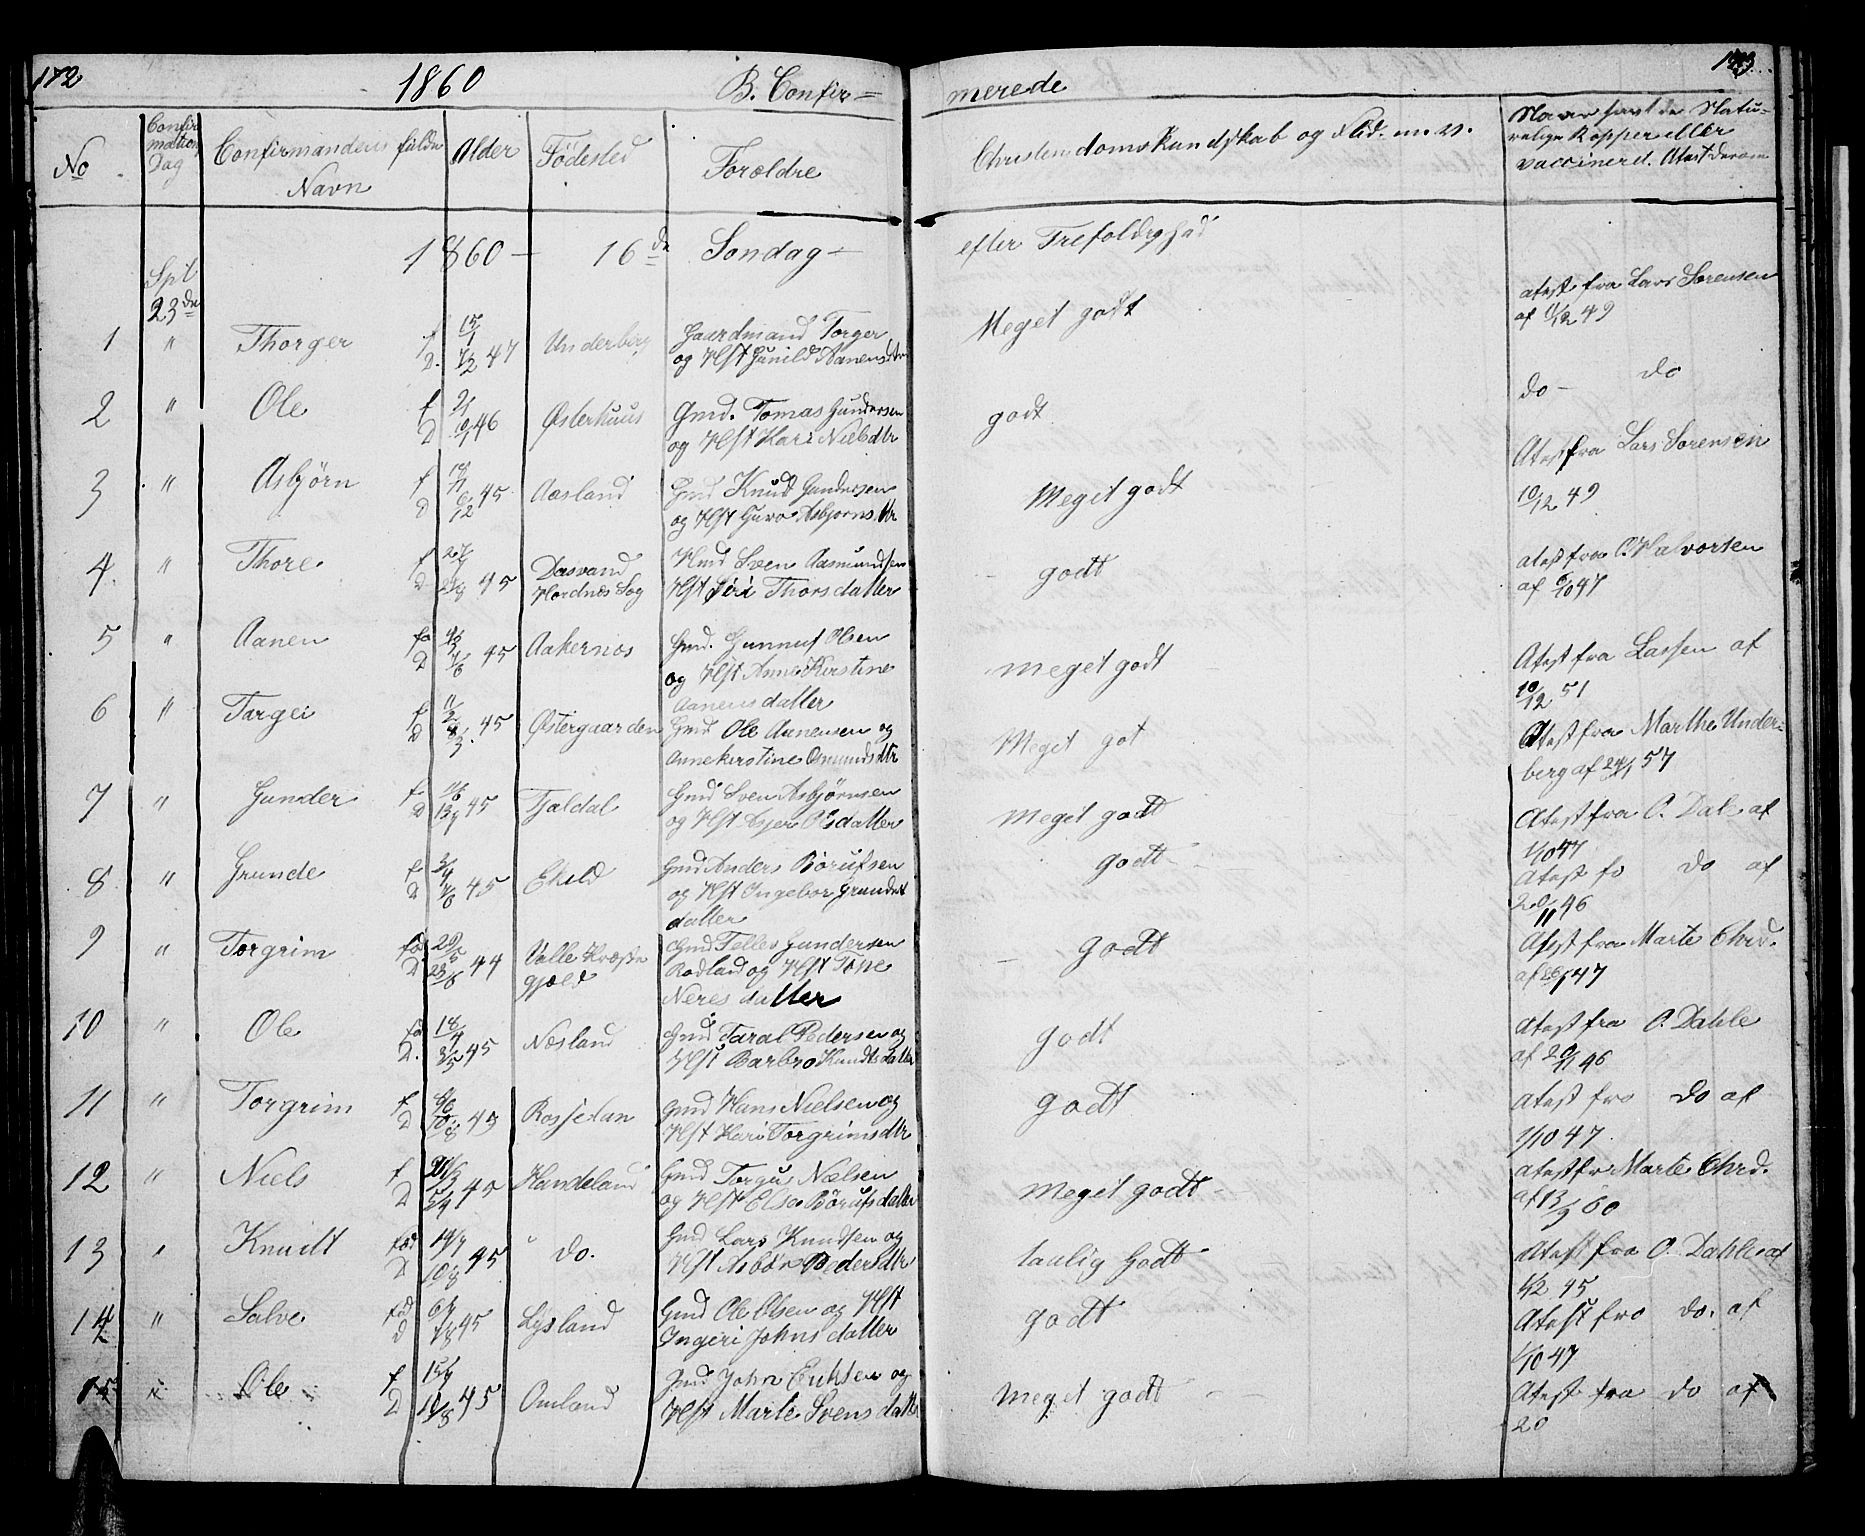 172
1860
B. Confir=
merede
173
No
Confir
mations
Dag
Confirmandens fulde
Navn
Alder
Fødested
Forældre
Christendomskundskab og Flid. m. v.
Naar havt de Natu-
relige Kopper eller
vaccinered. Atest derom
1860 — 16de Søndag —
efter Trefoldighed
Spt
23de
1 " Thorger f D. 47 Underberg
Gaardmand Torger
og Hst Gunild Aanensdtr
Meget godt
atest fra Lars Sorensen
af 49
2 " Ole f D 46 Østerhuus
Gmd. Tomas Gundersen
og Hst Kari Nielsdtr
godt
do — do
3 " Asbjørn f d 45 Aasland
Gmd Knud Gundersen
og Hst Guro Asbjorns dtr
Meget godt
Atest fra Lars Sorensen
10/12 49
4. " Thore f D 45
Dasvand
Hordnes Sog
Hmd Sven Aasmundsen
Hst Thorsdatter
godt
atest fra O. Halvorsen
af 6/10 47
5 " Aanen fø D 45 Aakernes
Gmd. Gunnuf Olsen
og Hst Anne Kirstine
Aanensdatter
meget godt
Atest fra Lassen af
10/12 51
6 " Targei f D 11/2 45 Østergaarden
Gmd Ole Aanensen og
Annekirstine Omunds dtr
Meget got
Atest fra Marthe Under-
berg af 57
7 " Gunder f D 45 Tjaldal
Gmd Sven Asbjørnsen
og Hst Olsdatter
meget godt
Atest fra O. Dale af
1/10 47
8 " Grunde f D 45 Ekeld
Gmd Anders Børufsen
og Hst Ingebor Grundes
datter
godt
Atest fo do af
20/11 46
9 " Torgrim fød D. 44
Valle Præste
gjeld
Gmd Tellef Gundersen
Rodland og Hst Tone
Neres datter
godt
Atest fra Marte Chrd.
af 47
10 " Ole fø D. 18/4 45 Næsland
Gmd Taral Pedersen og
Hst Barbro Knudtsdatter
godt
Atest fra O. Dahle
af 20/11 46
11 " Torgrim f D 45 Rossedan
Gmd Hans Nielsen og
Hst Kari Torgrimsdtr
godt
Atest fro do af
1/10 47.
12 " Niels f D 45 Handeland
Gmd Torgus Nielsen
og Hst Else Børufsdatter
meget godt
atest fr Marte Chrd.
af 13/9 60
13 " Knudt fød D 45 " do.
Gmd Lars Knudsen og
Hst Asbor Peders dtr
taulig Godt
Atest fra O. Dahle af
1/2 45
14 " Salve fø d 45 Lysland
Gmd Ole Olsen og Hst
Ingeri Johnsdatter
godt
Atest fro do. af
1/10 47
15 " Ole f D 45 Omland
Gmd John Eriksen og
Hst Marte Svensdatter
Meget godt
Atest fra do af
20